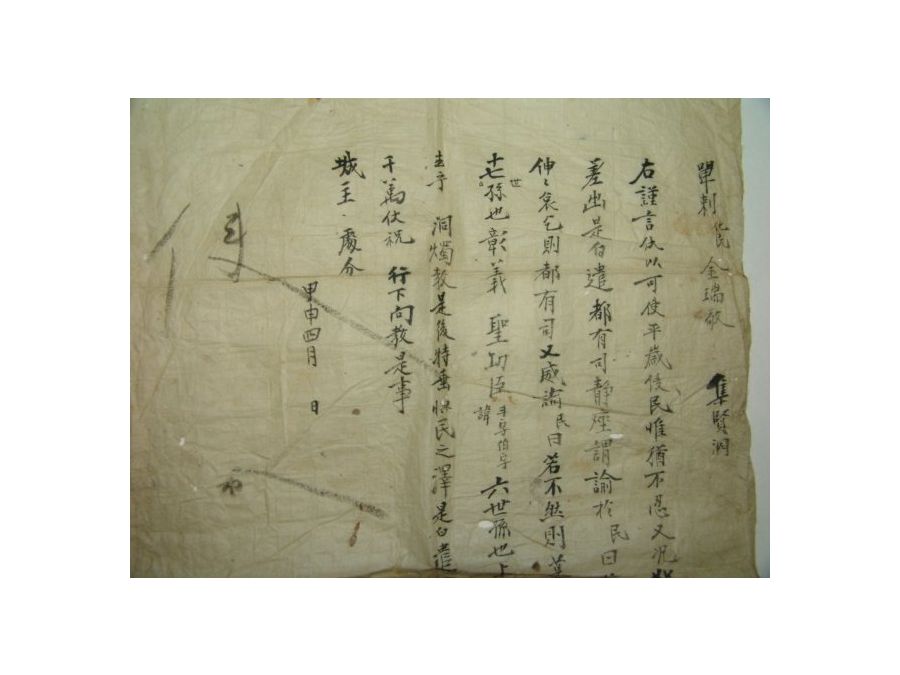 單刺 化民 金瑞敬 集賢洞
右謹言伏以可使平歲使民唯猶不忍又況
差出是白遣都有司靜座謂諭於民曰
伸〻哀乞則都有司又威諭民曰若不然則
十七世孫也彰義聖功臣諱 字伯字六世孫也上
洞燭敎是後特垂 民之澤是白遣
千萬伏祝 行下向敎是事
城主 處分
甲申四月 日